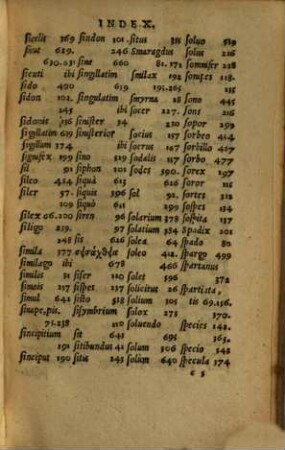 INDEX.
sicelis 369 sindon 101. situs 311 soluo 519
sicut 629. 246 Smaragdus solus 226
630.631 sine 660 81. 171 somnifer 228
sicuti ibi singillatim smilax 192 sontes 118.
sido 490 619 191.265 113
sidon 102. singulatim smyrna 28 sono 445
ibi socer 127. sons 216
sidonis 136 sinister 34 230 sopor 299
sigillatim 619 sinisterior socius 137 sorbeo 414
sigillum 374 ibi socrus 147 sorbillo 407
signifex 199 sino sodalis 117 sorbo 477
sil 91 siphon 101 sodes 590. sorex 197
sileo 414 siquà 613 626 soror 111
siler 57. siquis 196 sol 92. sortes 318
109 siquò 611 299 sospes
silex 66.200 siren 96 solarium 378 sospita 137
siligo 219. 97 solatium 334 Spadix 201
248 sis 626 solea 64 spado 80
simila 377 soleo 412. spargo 499
similago ibi 678 466 spartanus
similis siser 110 salet 596 372
simois 217 sispes 137 solicitus 26 spartista,
simul 642 sisto 318 solium 105 tis 69.156.
sinape, pis. sisymbrium solox 273. 370.
71.238 110 soluendo species 142.
sincipitium sit 645 695 365.
191 sitibundus 41 solum 306 specio 342
sinciput 190 sitis 243 solùm 640 specula 174
c 5